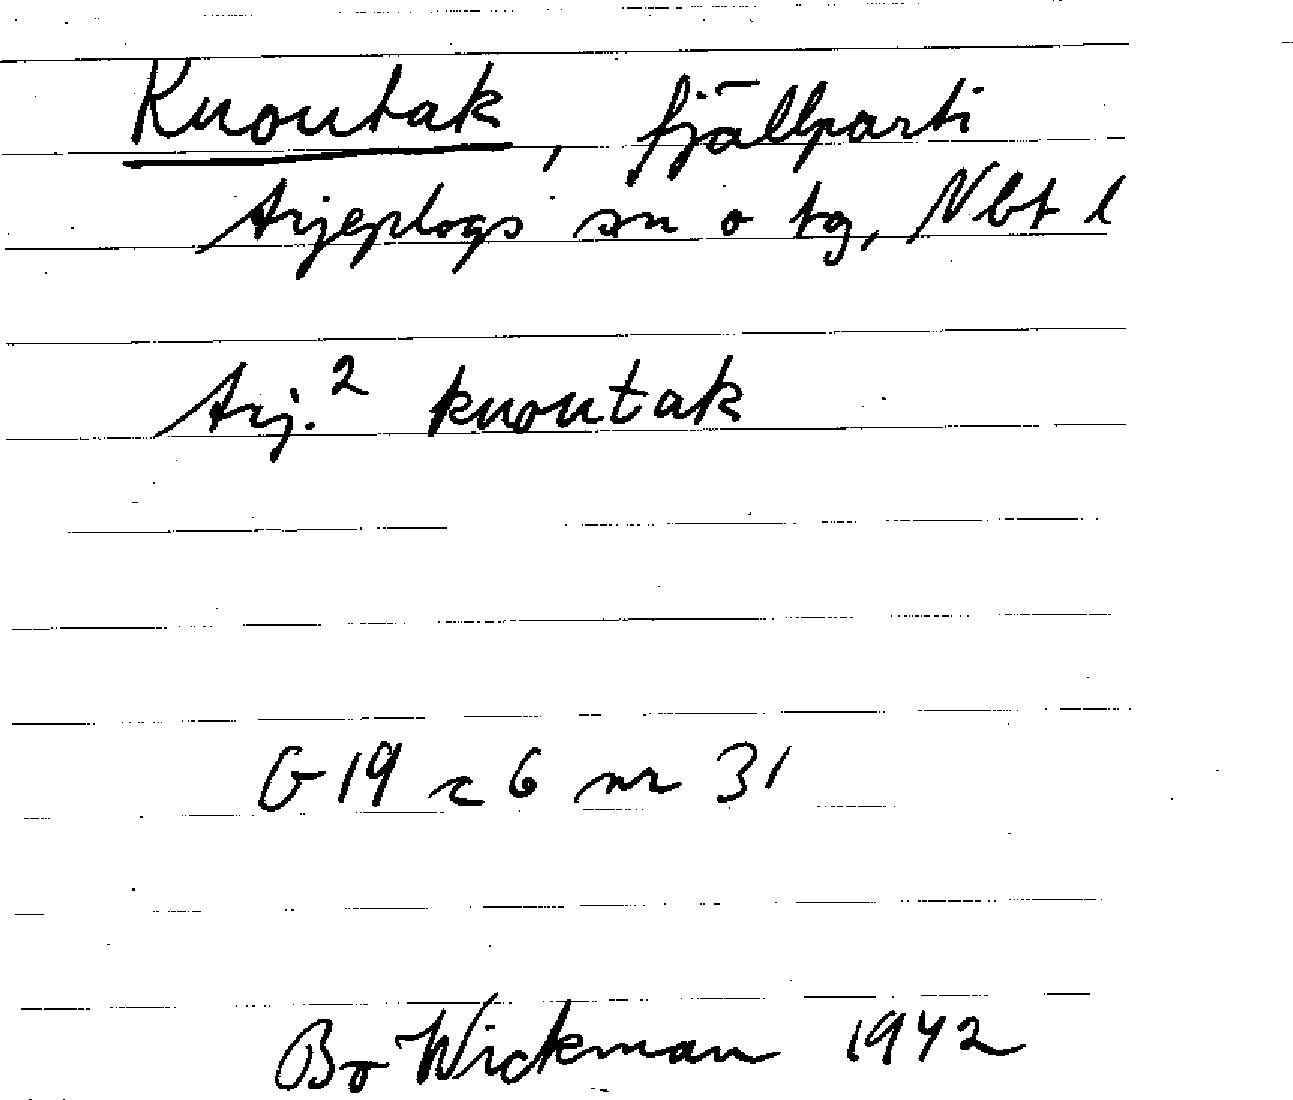 Knoutak, fjällparti
Arjeplogs sn o tg, Nbt l
Arj.² knoutak
G 19 c 6 nr 31
Bo Wickman 1942